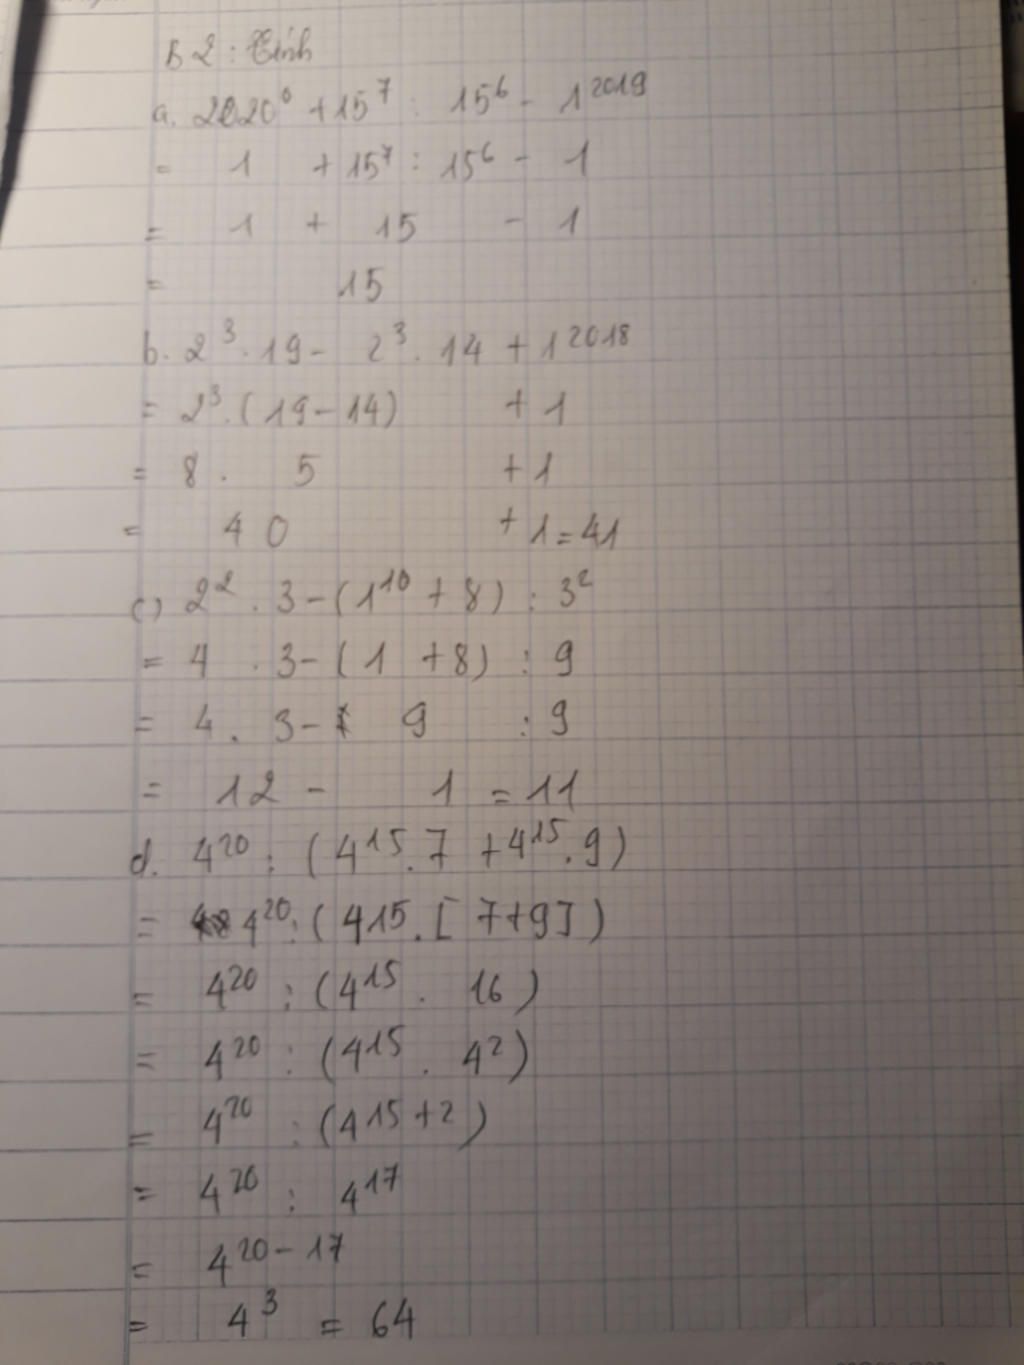 B2: Tính
a. 2020⁰ + 15⁷ : 15⁶ - 1²⁰¹⁹
= 1 + 15⁷ : 15⁶ - 1
= 1 + 15 - 1
= 15
b. 2³ . 19 - 2³ . 14 + 1²⁰¹⁸
= 2³ . (19 - 14) + 1
= 8 . 5 + 1
= 40 + 1 = 41
c) 2² . 3 - (1¹⁰ + 8) : 3²
= 4 . 3 - (1 + 8) : 9
= 4 . 3 - 9 : 9
= 12 - 1 = 11
d. 4²⁰ : (4¹⁵ . 7 + 4¹⁵ . 9)
= 4²⁰ : (415 . [7+9])
= 4²⁰ : (4¹⁵ . 16)
= 4²⁰ : (4¹⁵ . 4²)
= 4²⁰ : (4¹⁵⁺²)
= 4²⁰ : 4¹⁷
= 4²⁰⁻¹⁷
= 4³ = 64